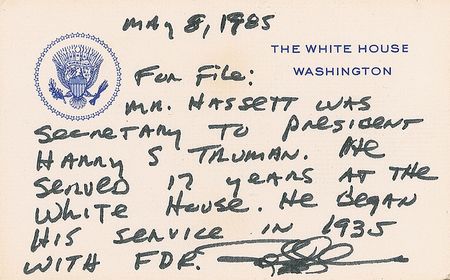 May 8, 1985
THE WHITE HOUSE
WASHINGTON
For File:
Mr. Hassett was
Secretary to President
Harry S Truman. He
served 17 years at the
White House. He began
his service in 1935
with FDR.